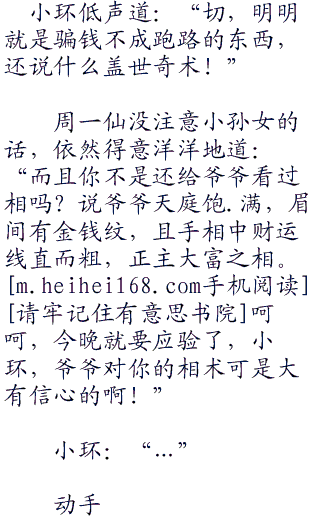 小环低声道：“切，明明
就是骗钱不成跑路的东西，
还说什么盖世奇术！”
周一仙没注意小孙女的
话，依然得意洋洋地道：
“而且你不是还给爷爷看过
相吗？说爷爷天庭饱.满，眉
间有金钱纹，且手相中财运
线直而粗，正主大富之相。
[m.heihei168.com手机阅读]
[请牢记住有意思书院]呵
呵，今晚就要应验了，小
环，爷爷对你的相术可是大
有信心的啊！”
小环：“…”
动手